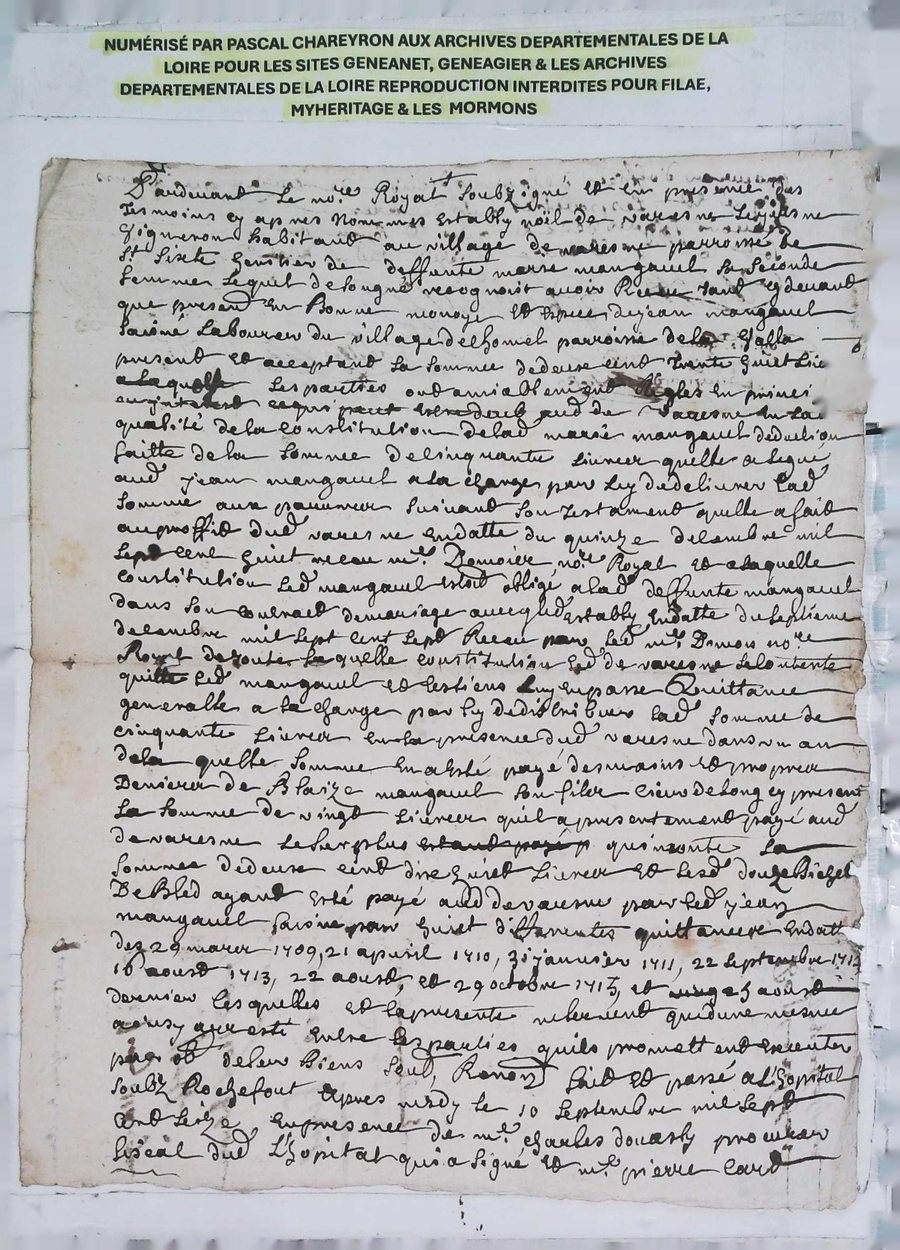 NUMÉRISÉ PAR PASCAL CHAREYRON AUX ARCHIVES DEPARTEMENTALES DE LA
LOIRE POUR LES SITES GENEANET, GENEAGIER & LES ARCHIVES
DEPARTEMENTALES DE LA LOIRE REPRODUCTION INTERDITES POUR FILAE,
MYHERITAGE & LES MORMONS
Pardevant Le no.re Royal Soubzigné Et En presence des
Tesmoins cy apres Nommes Estably noil de varesne
vigneron habitant au village de varesne parroisse de
St Sixte heritier de deffunte marie mangaud Sa Seconde
femme Lequel de Son gré recognoit avoir Receu tant cy devant
que present En Bonne monoye Et Espece, de jean mangaud
Laisné Laboureur du village delhomel parroisse de la
present Et acceptant La Somme de deux cent Trente huict Liv
a laquelle les parties ont amiablement Regles En princi
ce qui peut aud de Varesne En La
qualité de la Constitution de lad marie mangaud deduction
faitte de la Somme de Cinquante Livres quelle a legué
aud jean mangaud a la charge par Luy de delivrer lad
Somme aux pauvres Suivant Son Testament quelle a fait
au proffit dud varesne En datte du quinze decembre mil
Sept Cent huict receu m.e no.re Royal Et a laquelle
Constitution Led mangaud Estoit obligé a lad deffunte mangaud
dans Son Contract de mariage avec led Estably En datte du Septieme
decembre mil Sept Cent Sept Receu par led m.e no.re
Royal de toute Laquelle Constitution Led de varesne Se Contente
quitte Led mangaud Et les Siens Luy En passe Quittance
generalle a la charge par Luy de distribuer lad Somme de
Cinquante Livres En la presence dud varesne dans un an
de la quelle Somme En a Esté payé des mains Et propres
Deniers de Blaize mangaud Son fils cy present
La Somme de vingt Livres quil a presentement payé aud
de varesne Le Surplus Estant payé qui monte La
Somme de deux Cent dix huict Livres Et Lesd douze Bichet
De Bled ayant Esté payé aud de varesne par led jean
mangaud Laisné par huict differentes quittances En datt
des 29 mars 1709, 21 apvril 1710, 31 janvier 1711, 22 Septembre
16 aoust 1713, 22 aoust, Et 29 octobre 1715, et 25 aoust
dernier Lesquelles Et la presente ne Servent que dune mesme
ainsy arresté Entre Les parties quils promettent Executer
par ob de leur Biens Soub, Renon fait Et passé a L'hopital
Soubz Rochefort Apres midy le 10 Septembre mil Sept
Cent Seize En presence de m.e Charles douarly procureur
fiscal dud L'hopital qui a Signé Et m.e pierre Card